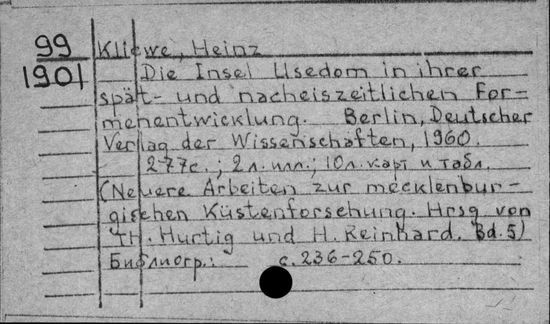 99
1901
Kliewe, Heinz
Die Insel Usedom in ihrer
spät- und nacheiszeitlichen For-
menentwicklung. Berlin, Deutscher
Verlag der Wissenschaften, 1960.
277с.; 2л. илл.; 10л. карт и табл.
(Neuere Arbeiten zur mecklenbur-
gischen Küstenforschung. Hrsg von
TH. Hurtig und H. Reinhard. Bd. 5)
Библиогр.: с. 236-250.